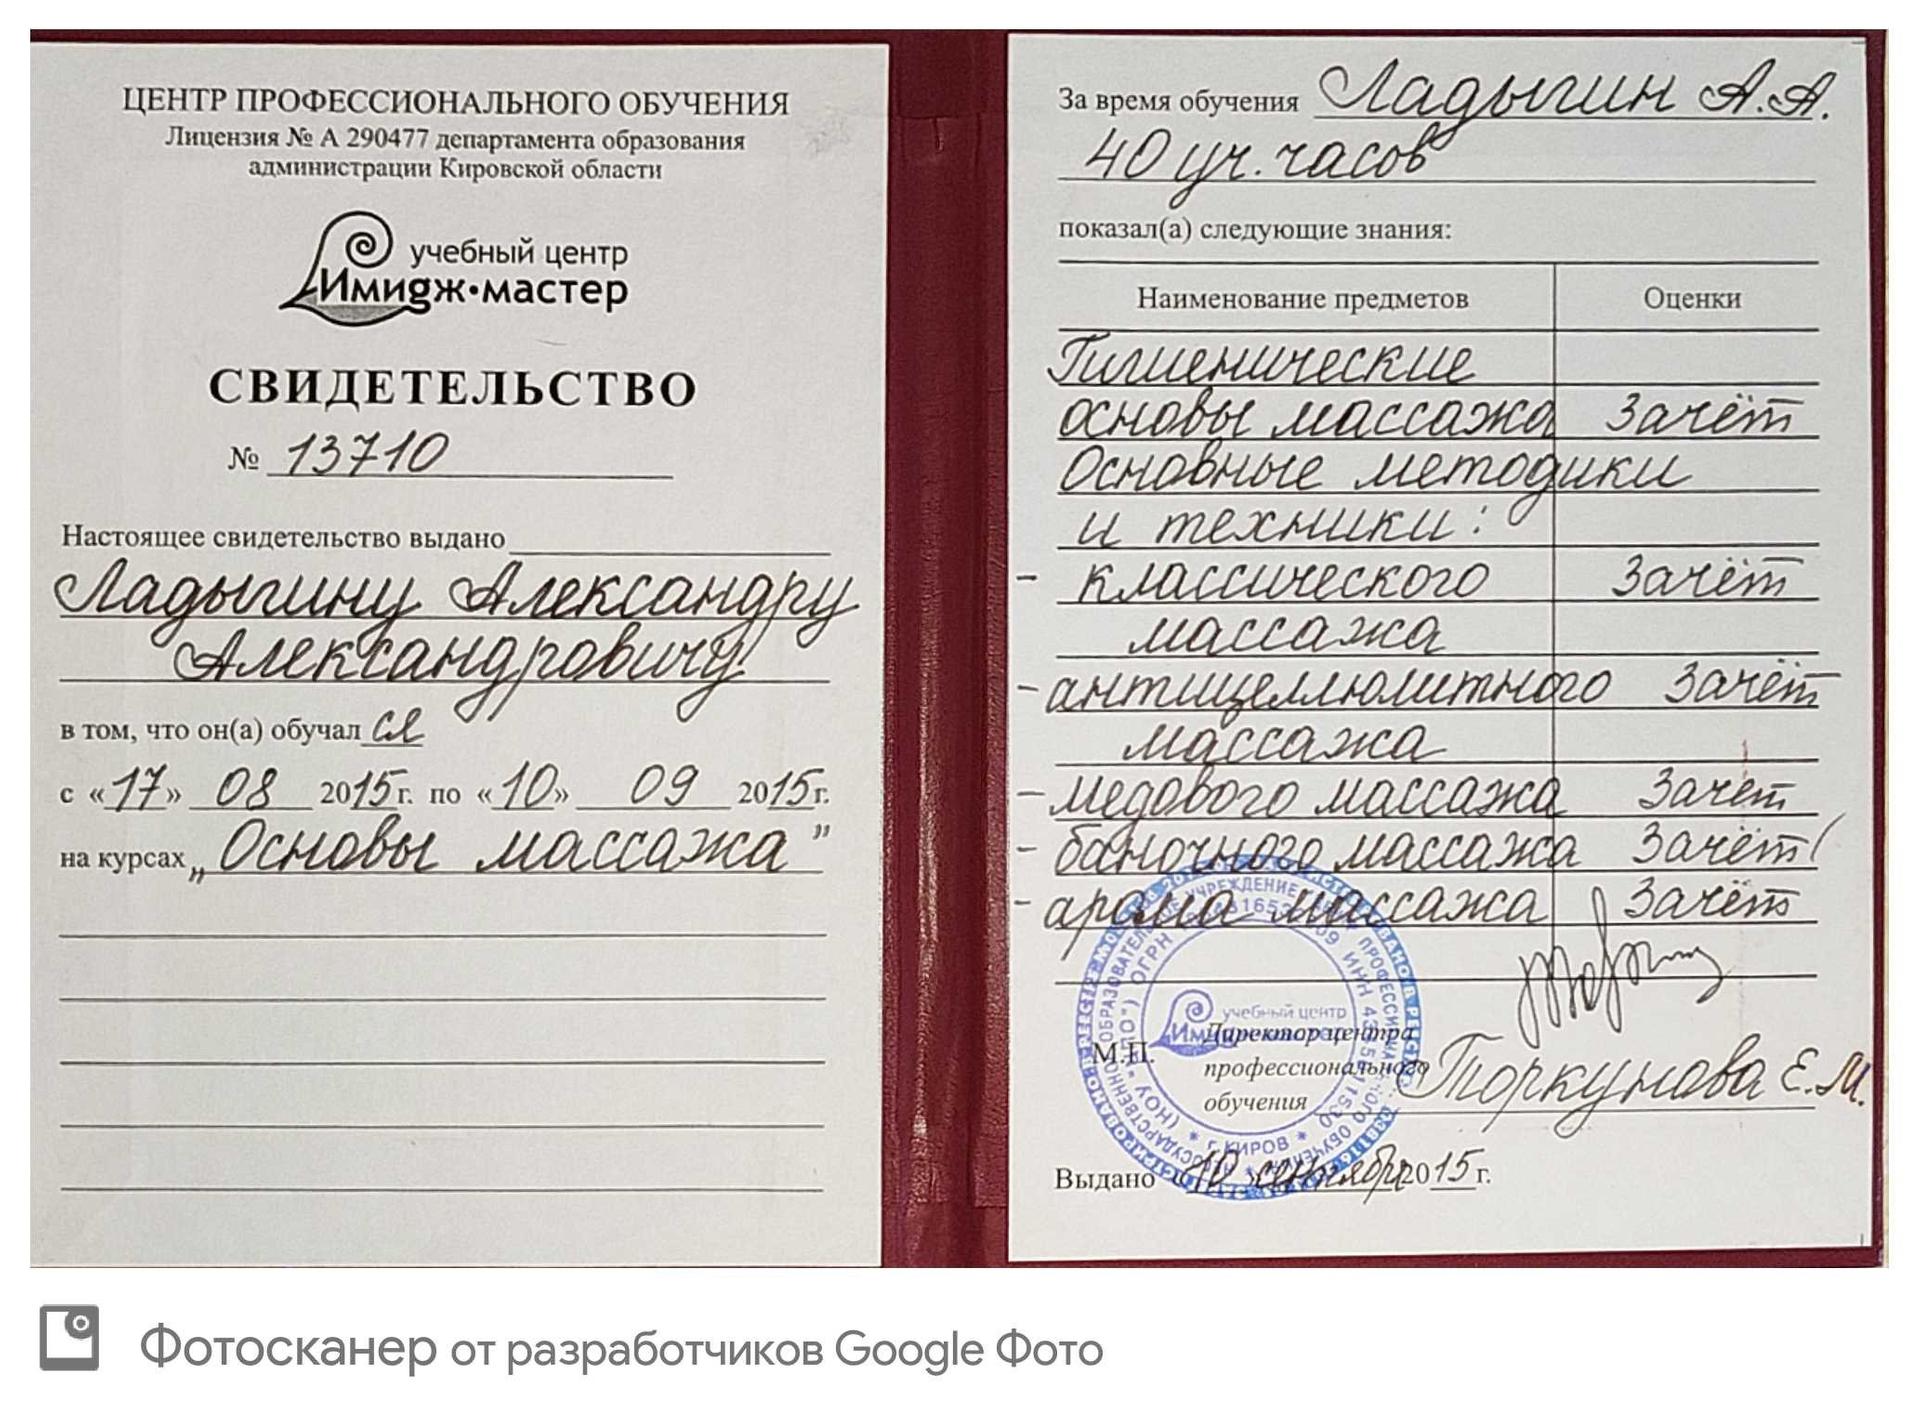 ЦЕНТР ПРОФЕССИОНАЛЬНОГО ОБУЧЕНИЯ
Лицензия № А 290477 департамента образования
администрации Кировской области
учебный центр
Имидж•мастер
СВИДЕТЕЛЬСТВО
№ 13710
Настоящее свидетельство выдано
Ладыгину Александру
Александровичу
в том, что он(а) обучал ся
с «17» 08 2015г. по «10» 09 2015г.
на курсах „Основы массажа"
За время обучения Ладыгин А.А.
40 уч. часов
показал(а) следующие знания:
Наименование предметов Оценки
Гигиенические
основы массажа Зачёт
Основные методики
и техники:
- классического Зачёт
массажа
- антицеллюлитного Зачёт
массажа
- медового массажа Зачёт
- баночного массажа Зачёт
- арома массажа Зачёт
учебный центр
М.П.
Директор центра
профессионального
обучения Торкунова Е.М.
г. КИРОВ
Выдано «10 сентября 2015г.
Фотосканер от разработчиков Google Фото